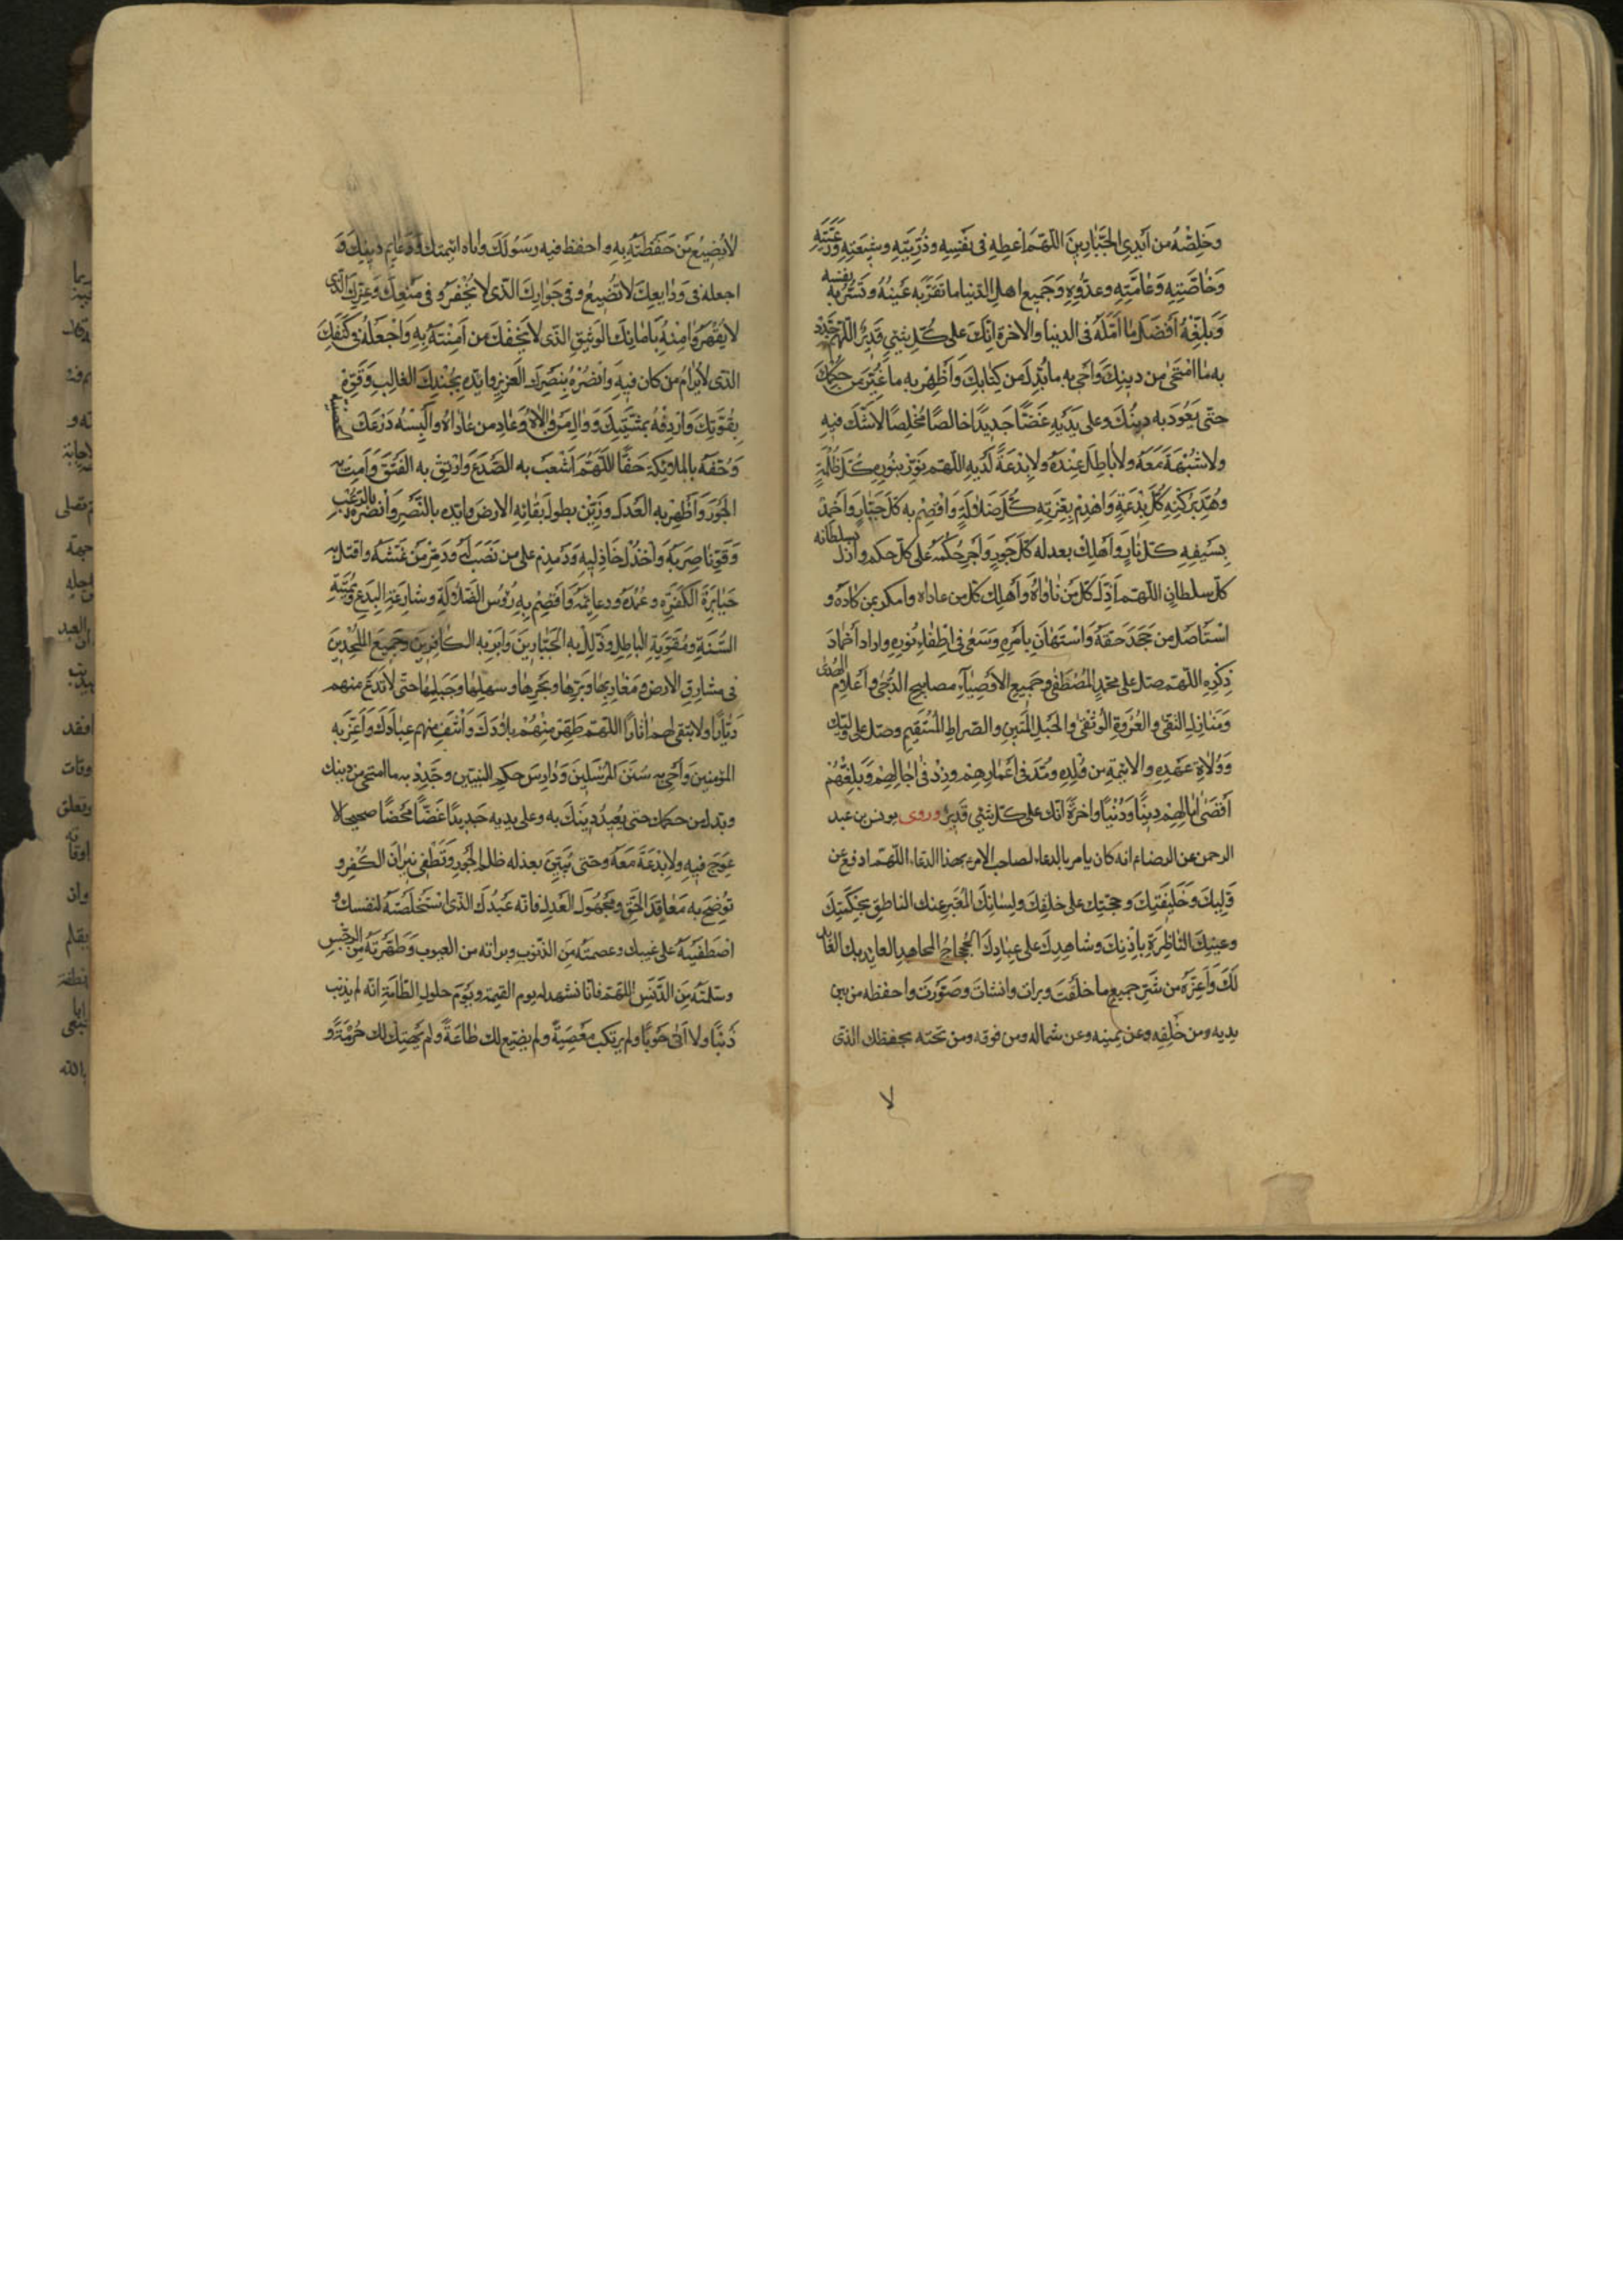 وَخَلِّصْهُ من اَيْدِى الجَبّارِينَ اللّهمّ اَعْطِهِ فى نَفْسِهِ وذُرِّيَّتِهِ وشِيعَتِهِ وَرَعِيَّتِهِ
وَخٰاصَّتِهِ وَعٰامَّتِهِ وعدُوِّهِ وَجَميع اهل الدّنيا ما تَقَرُّ به عَيْنُهُ وتَسُرُّ به نفسه
وَبَلِّغْهُ اَفْضَلَ مٰا اَمَّلَهُ فى الدنيا والاخرة اِنَّكَ على كُلِّ شئ قَدِيرٌ اللّهمّ جَدِّدْ
به مٰا امْتَحٰى من دينِكَ وَاَحْىِ به ما بُدِّلَ من كِتابِكَ وَاَظْهِرْ به ما غُيِّرَ من حُكْمِكَ
حتّى يَعُودَ به دِينُكَ وعلى يَدَيْهِ غَضّاً جَدِيدًا خالصًا مُخْلصًا لاشَكَّ فيهِ
ولا شُبْهَةَ مَعَهُ ولا بٰاطِلَ عِنْدَهُ ولا بِدْعَةً لَدَيْهِ اللهم نَوِّرْ بنُورِهِ كُلَّ ظُلْمَةٍ
وهُدَّ بِرُكْنِهِ كُلَّ بِدْعَةٍ وَاهْدِمْ بِعِزَّتِهِ كُلَّ ضَلٰالَةٍ وَاقْصِمْ به كُلَّ جَبّارٍ وَاَخْمِدْ
بِسَيْفِهِ كلّ نٰارٍ وَاَهْلِكْ بعدله كُلَّ جَورٍ وَاَجْرِ حُكْمَهُ على كلّ حكم وَاَذِلّ بسلطانه
كلّ سلطانٍ اللّهمّ اَذِلَّ كُلَّ مَنْ نٰاوٰاهُ وَاَهْلِكْ كلّ من عاداه وَامكر بمن كٰادَهُ و
اسْتَأصِلْ من جَحَدَ حَقّهُ وَاسْتَهٰانَ بِاَمْرِهِ وَسَعٰى فى اِطْفٰاءِ نُورِهِ واراد اخْمٰادَ
ذِكْرِهِ اللّهمّ صلّ على محمّدٍ المُصْطَفٰى وجَميعِ الاَوْصِيٰاءِ مصابيح الدُّجٰى واَعْلامِ الهُدٰى
وَمَنٰارِ التقى والعُرْوَةِ الوُثْقٰى والحَبْلِ المَتِينِ والصّراطِ المُسْتَقِيمِ وصلّ على وليّك
وَوُلٰاةِ عَهْدِهِ والائمّةِ من وُلْدِهِ ومُدَّ فى اَعْمٰارِهِمْ وزِدْ فى اٰجٰالِهِمْ وَبَلِّغْهُمْ
اَقْصٰى اٰمٰالِهِمْ دِيناً وَدُنْيًا واخِرَةً انّك على كلّ شئٍ قَدِيرٌ وروى يونس بن عبد
الرحمن عن الرضا ع انه كان يامر بالدعاء لصاحب الامر بهذا الدعاء اللّهمّ ادفع عن
وَلِيِّكَ وخَلِيفَتِكَ وحجّتِك على خلقِكَ ولِسٰانِكَ المُعَبِّرِ عنك الناطِقِ بِحِكْمَتِكَ
وعينِكَ النّاظِرَةِ باِذْنِكَ وشٰاهِدِكَ على عِبٰادِكَ الجَحْجٰاحِ المجاهِدِ العايِذِ بك العٰابد
لَكَ وَاَعِذْهُ من شَرِّ جميعِ ما خلَقْتَ وبرات وانشات وصَوَّرْتَ واحفظه من بين
يديه ومن خَلْفِهِ وعن يمينه وعن شماله ومن فوقه ومن تحته بحفظك الذى
لا
لايُضِيعُ مَنْ حَفِظْتَهُ بِهِ واحفظ فيه رسُولَكَ واٰبٰاه ائمتك وَدَعٰائِم دِينِكَ وَ
اجعله فى وَدٰايعِكَ الّتى لا تَضيعُ وفى جِوٰارِكَ الّذى لا يُخْفَرُ وفى مَنْعِكَ وَعِزِّكَ الّذى
لا يُقْهَرُ وَامِنْهُ بِاَمٰانِكَ الوَثِيقِ الذّى لا يُخْذَلُ من اٰمَنْتَهُ بِهِ وَاجْعَلْهُ فى كَنَفِكَ
الذى لا يُرٰامُ من كان فيهِ وانْصُرْهُ بِنَصْرِكَ العَزِيزِ وايّده بِجُنْدِكَ الغالِبِ وَقَوِّهِ
بِقُوَّتِكَ وَاَرْدِفْهُ بمَلٰئِكَتِكَ وَوٰالِ مَن وٰالٰاهُ وَعٰادِ من عٰادٰاهُ وَاَلْبِسْهُ دِرْعَكَ الحصينة
وَحُفَّهُ بالملائِكَةِ حَفًّا اللّهُمَّ اشْعَبْ به الصَّدْعَ وَارْتِقْ به الفَتْقَ وَاَمِتْ به
الجَوْرَ وَاَظْهِرْ به العَدْلَ وزَيِّنْ بطول بَقائِهِ الارضَ وايّده بالنَّصْرِ وانْصُرْهُ بالرُّعْبِ
وَقَوِّ نٰاصِرِيهِ وَاخْذُلْ خٰاذِلِيهِ وَدَمْدِمْ على من نَصَبَ لَهُ وَدَمِّرْ مَنْ غَشَّهُ واقتل به
جَبٰابِرَةَ الكَفَرَةِ وعُمُدَهُ ودعايِمَهُ وَاقْصِمْ بِهِ رُؤُسَ الضّلٰالَةِ وشارعَةَ البِدَعِ ومُمِيتَةَ
السُّنَّةِ ومُقَوِّيَةَ الباطِلِ وذَلِّلْ به الجَبّارِينَ وَاَبِرْ به الكافِرِينَ وجَمِيعَ المُلْحِدِينَ
فى مشارِقِ الارضِ ومَغارِبِها وبَرِّها وبَحْرِها وسهلِها وجَبَلِهٰا حتّى لا تَدَعَ منهم
دَيّٰارًا ولا تبقى لهم اٰثٰارًا اللّهمّ طَهِّرْ مِنْهُمْ بِلٰادَكَ وَاشْفِ منهم عِبٰادَكَ وَاَعِزَّ به
المؤمنِينَ وَاَحْىِ به سُنَنَ المُرْسَلِينَ وَدٰارِسَ حكم النبيّين وجَدِّدْ به ما امتحى من دينك
وبدل من حكمك حتى تُعِيدَ دِينَكَ به وعلى يديه جَدِيدًا غَضّاً مَحْضًا صحيحا لا
عِوَجَ فِيهِ ولا بِدْعَةَ مَعَهُ وحتى تُبِينَ بعدله ظلم الجَورِ وتُطْفِى نيرانَ الكُفْرِ و
تُوضِحَ به مَعٰاقِدَ الحَقِّ ومَجْهُولَ العَدْلِ فانه عَبْدُكَ الذّى اسْتَخْلَصْتَهُ لنفسك و
اصْطَفَيْتَهُ على غيبك وعصمتَهُ مِنَ الذّنُوبِ وبراته من العيوب وَطَهَّرْتَهُ مِنَ الرِّجْسِ
وسلّمتَهُ مِنَ الدَّنَسِ اللّهمّ فانّا نشهد له يوم القيمة ويَوْمَ حلولِ الطّامّةِ انّه لم يذنب
ذَنْبًا ولا اَتٰى حُوبًا ولم يرتكب مَعْصِيَةً ولم يضيّع لك طٰاعَةً ولم يَهْتِكْ لك حُرْمَةً و